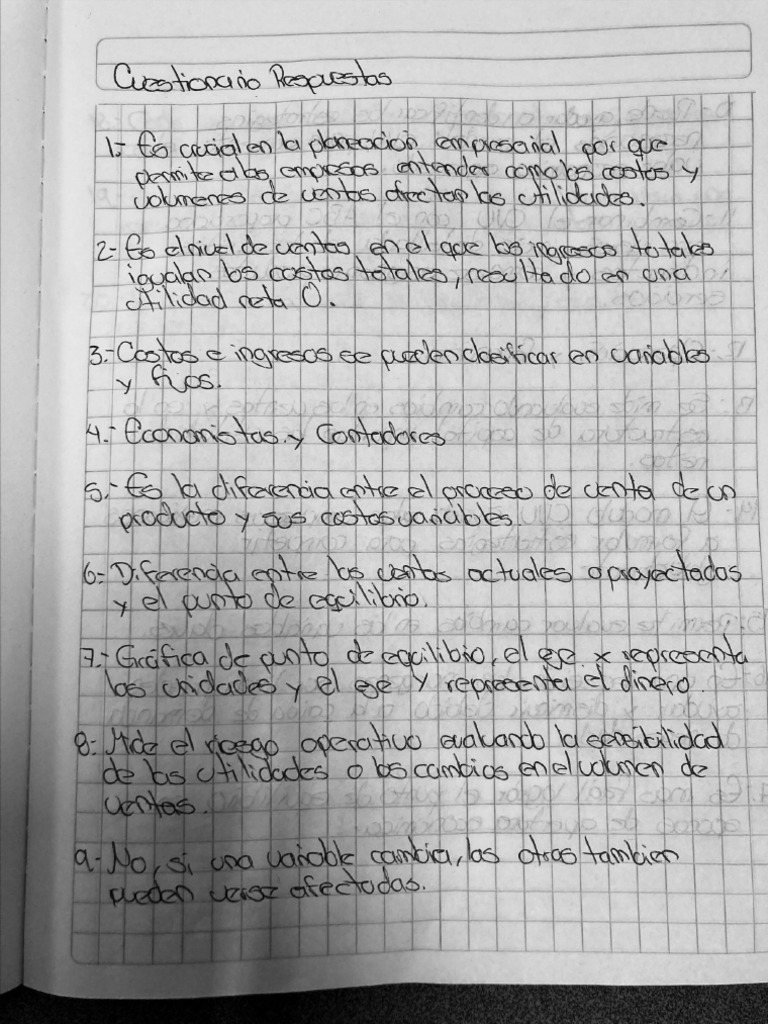 Cuestionario Respuestas
1.- Es crucial en la planeación empresarial por que
permite a las empresas entender como los costos y
volumenes de ventas afectan las utilidades.
2- Es el nivel de ventas en el que los ingresos totales
igualan los costos totales, resultado en una
utilidad neta 0.
3.- Costos e ingresos se pueden clasificar en variables
y fijos.
4.- Economistas y Contadores
5.- Es la diferencia entre el proceso de venta de un
producto y sus costos variables.
6- Diferencia entre las ventas actuales o proyectadas
y el punto de equilibrio.
7.- Gráfica de punto de equilibrio, el eje x representa
las unidades y el eje y representa el dinero.
8- Mide el riesgo operativo evaluando la sensibilidad
de las utilidades o los cambios en el volumen de
ventas.
9- No, si una variable cambia, las otras tambien
pueden verse afectadas.